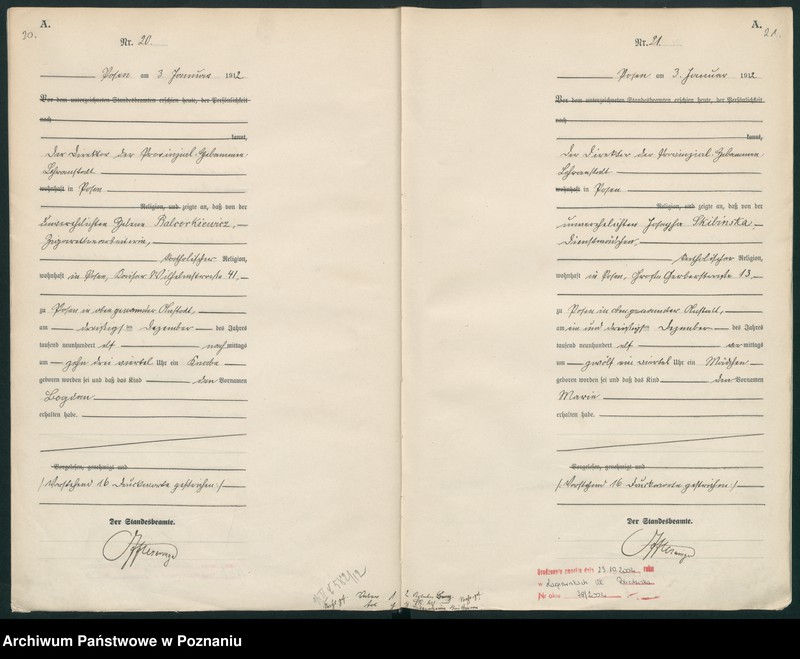 A.
20.
Nr. 20.
Posen am 3 Januar 1912
Vor dem unterzeichneten Standesbeamten erschien heute, der Persönlichkeit
nach
kannt,
Der Direktor der Provinzial-Hebammen
Lehranstalt
wohnhaft in Posen
Religion, und zeigte an, daß von der
unverehelichten Helene Balcerkiewicz,
Zigarettenarbeiterin,
katholischer Religion,
wohnhaft in Posen, Kaiser Wilhelmstrasse 41,
zu Posen in obengenannter Anstalt,
am dreißigsten Dezember des Jahres
tausend neunhundert elf nachmittags
um zehn drei viertel Uhr ein Knabe
geboren worden sei und daß das Kind den Vornamen
Bogdan
erhalten habe.
Vorgelesen, genehmigt und
/Vorstehend 16 Druckworte gestrichen:/
Der Standesbeamte.
A.
21.
Nr. 21
Posen am 3. Januar 1912
Vor dem unterzeichneten Standesbeamten erschien heute, der Persönlichkeit
nach
kannt,
Der Direktor der Provinzial-Hebammen
Lehranstalt
wohnhaft in Posen
Religion, und zeigte an, daß von der
unverehelichten Josepha Skibinska
Dienstmädchen,
katholischer Religion,
wohnhaft in Posen, Große Gerberstraße 13,
zu Posen in obengenannter Anstalt,
am ein und dreißigsten Dezember des Jahres
tausend neunhundert elf vormittags
um zwölf ein viertel Uhr ein Mädchen
geboren worden sei und daß das Kind den Vornamen
Marie
erhalten habe.
Vorgelesen, genehmigt und
/Vorstehend 16 Druckworte gestrichen:/
Der Standesbeamte.
23.10.2006 roku
w
Nr aktu
Archiwum Państwowe w Poznaniu